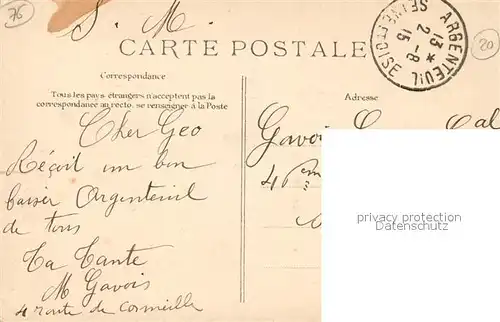 76
S. M.
CARTE POSTALE
20
ARGENTEUIL
13 *
2 - 8
15
SEINE ET OISE
Correspondance
Tous les pays étrangers n'acceptent pas la
correspondance au recto. se renseigner à la Poste
Adresse
Cher Geo
Reçoit un bon
baiser Argenteuil
de tous
Ta Tante
M Gavois
4 route de Cormeille
Gavois
4
privacy protection
Datenschutz